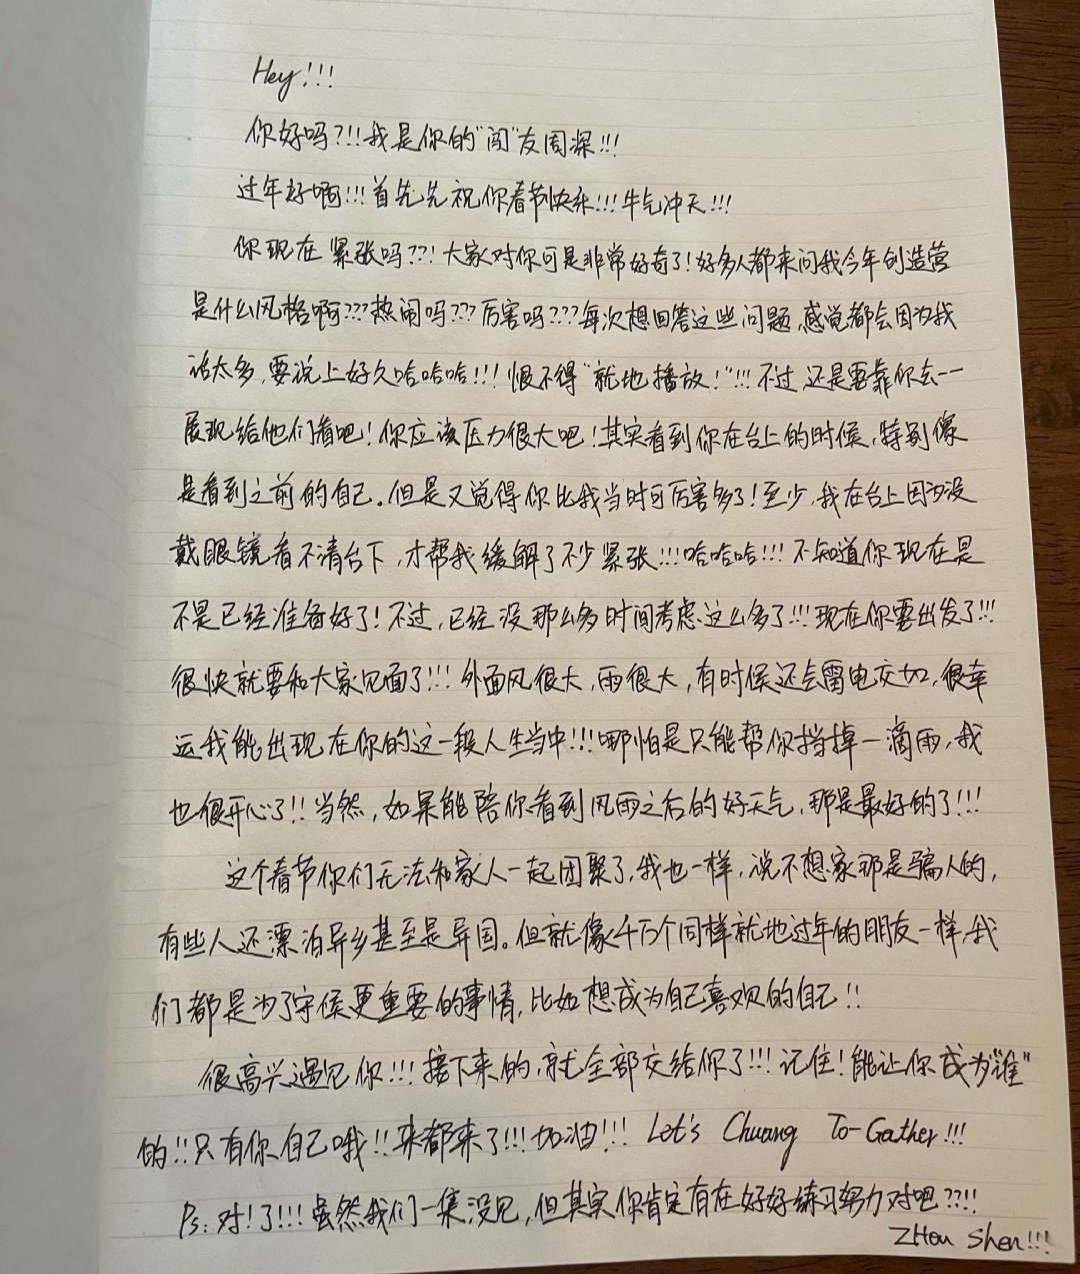 Hey!!!
你好吗?!!我是你的"闯"友周深!!!
过年好啊!!!首先先祝你春节快乐!!!牛气冲天!!!
你现在紧张吗??!大家对你可是非常好奇了!好多人都来问我今年创造营
是什么风格啊???热闹吗???厉害吗???每次想回答这些问题,感觉都会因为我
话太多,要说上好久哈哈哈!!!恨不得"就地播放!"!!!不过,还是要靠你去一一
展现给他们看吧!你应该压力很大吧!其实看到你在台上的时候,特别像
是看到之前的自己。但是又觉得你比我当时可厉害多了!至少,我在台上因为没
戴眼镜看不清台下,才帮我缓解了不少紧张!!!哈哈哈!!!不知道你现在是
不是已经准备好了!不过,已经没那么多时间考虑这么多了!!!现在你要出发了!!!
很快就要和大家见面了!!!外面风很大,雨很大,有时候还会雷电交加,很幸
运我能出现在你的这一段人生当中!!!哪怕是只能帮你挡掉一滴雨,我
也很开心了!!当然,如果能陪你看到风雨之后的好天气,那是最好的了!!!
这个春节你们无法和家人一起团聚了,我也一样,说不想家那是骗人的,
有些人还漂泊异乡甚至是异国。但就像千万个同样就地过年的朋友一样,我
们都是为了守候更重要的事情,比如想成为自己喜欢的自己!!
很高兴遇见你!!!接下来的,就全部交给你了!!!记住!能让你成为"谁"
的!!只有你自己哦!!来都来了!!!加油!!! Let's Chuang To-Gather!!!
Ps:对!了!!!虽然我们一集没见,但其实你肯定有在好好练习努力对吧??!!
ZHou Shen!!!